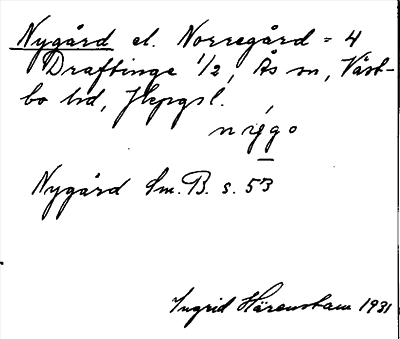 Nygård el. Norregård = 4
Draftinge 1/2, Ås sn, Väst-
bo hd, Jkpgs l.
nýgo
Nygård Sm. B. s. 53
Ingrid Härenstam 1931